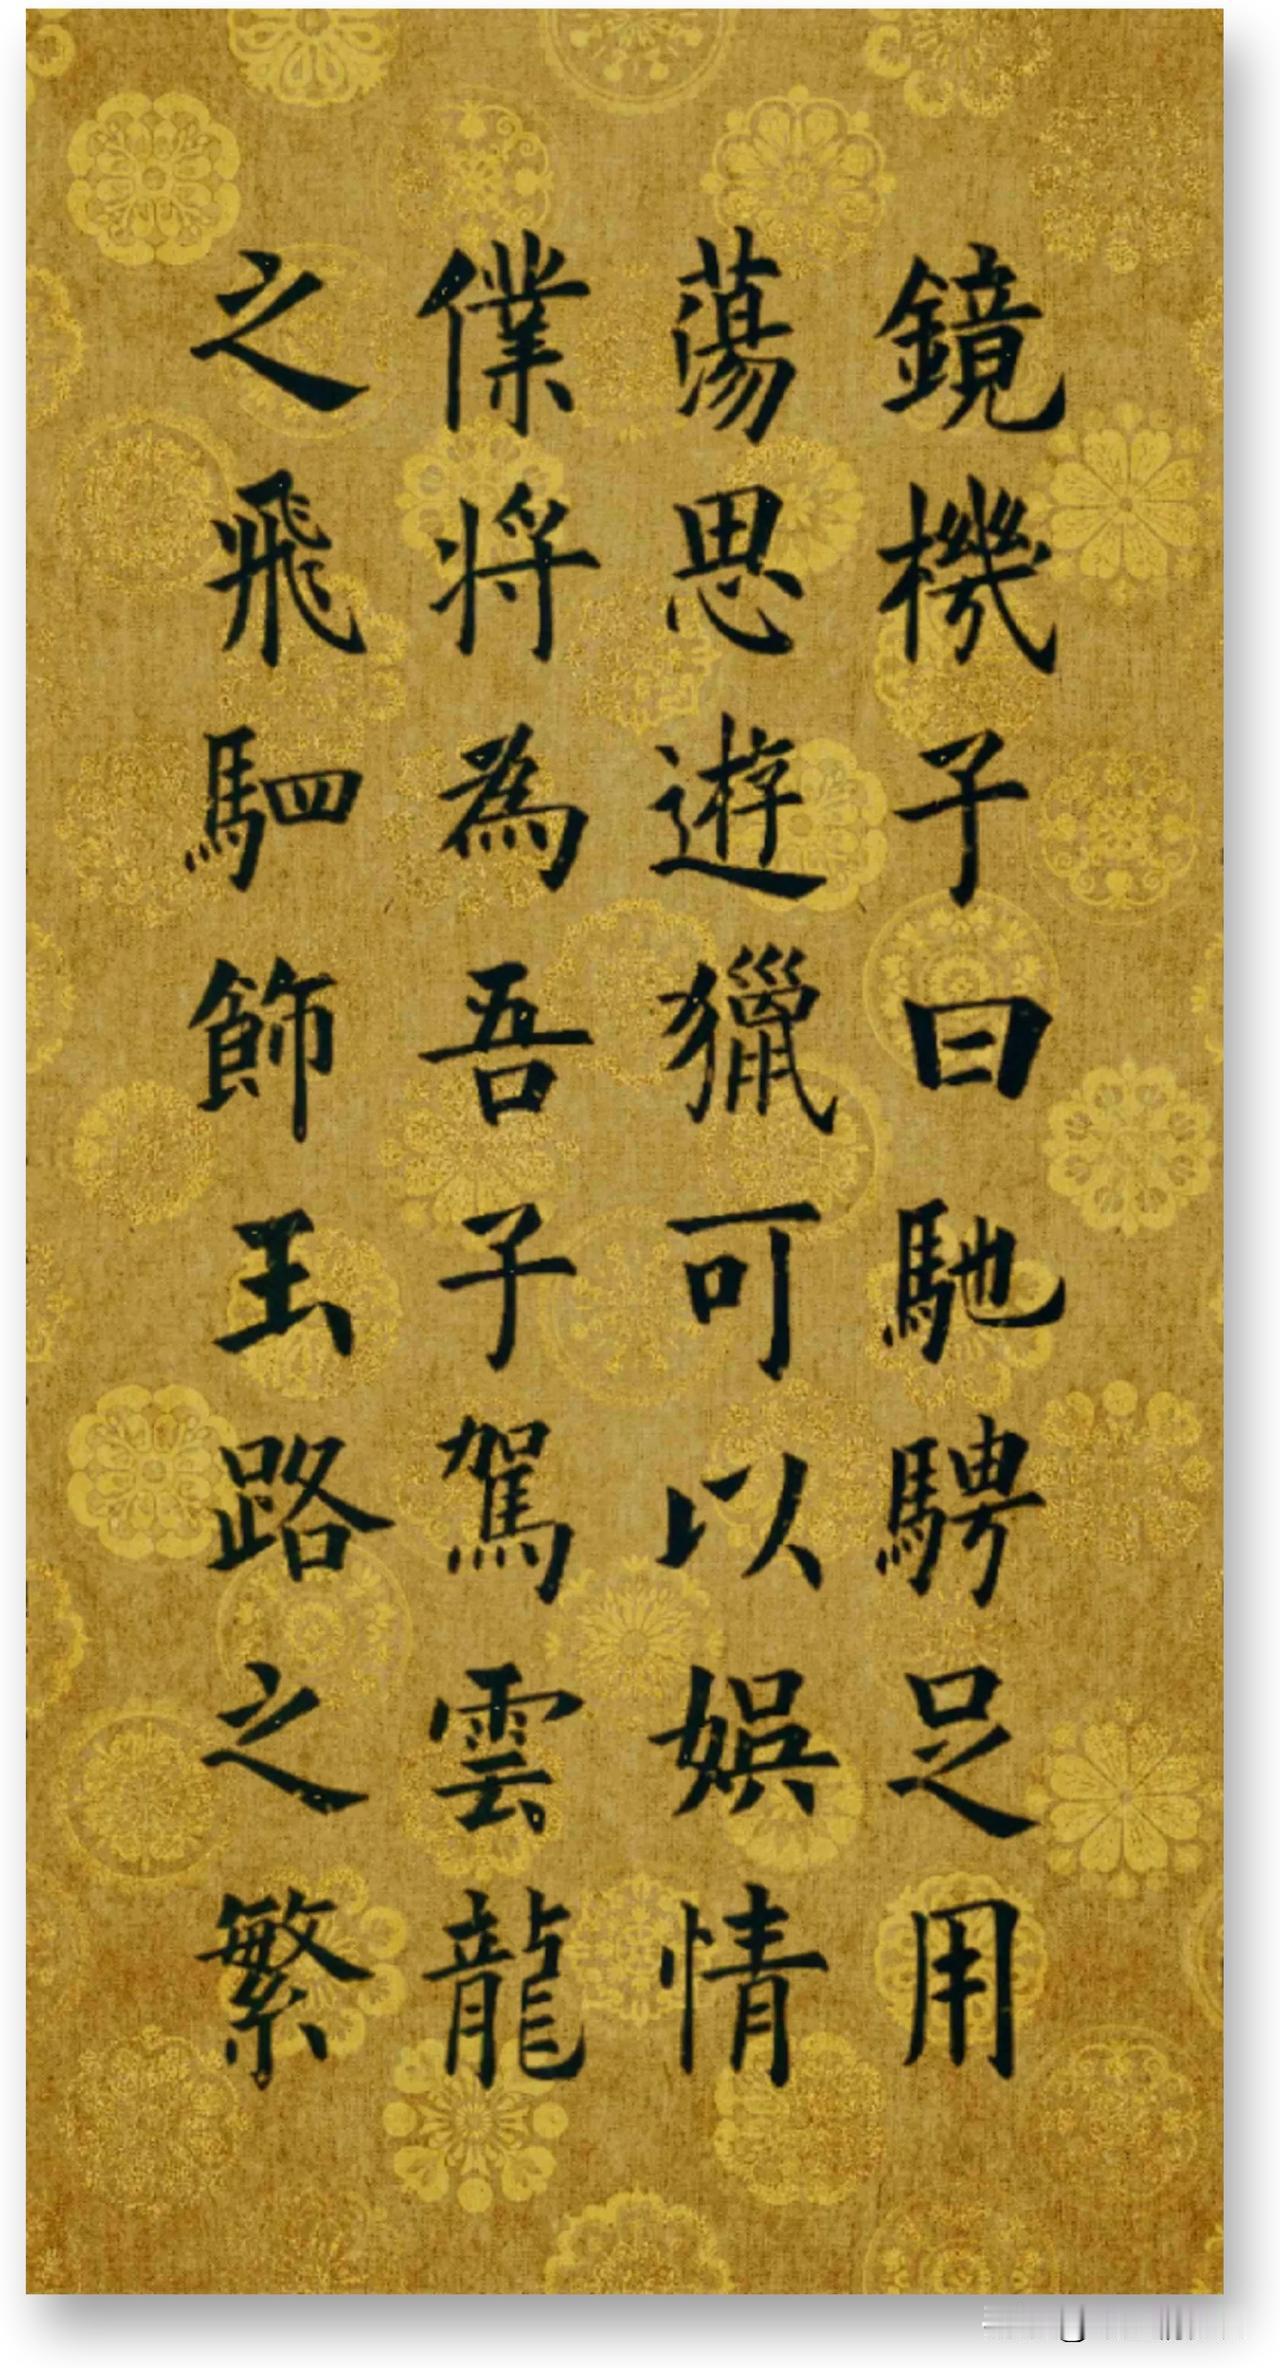 鏡機子曰馳騁足用
蕩思遊獵可以娛情
僕將為吾子駕雲龍
之飛駟飾玉路之繁